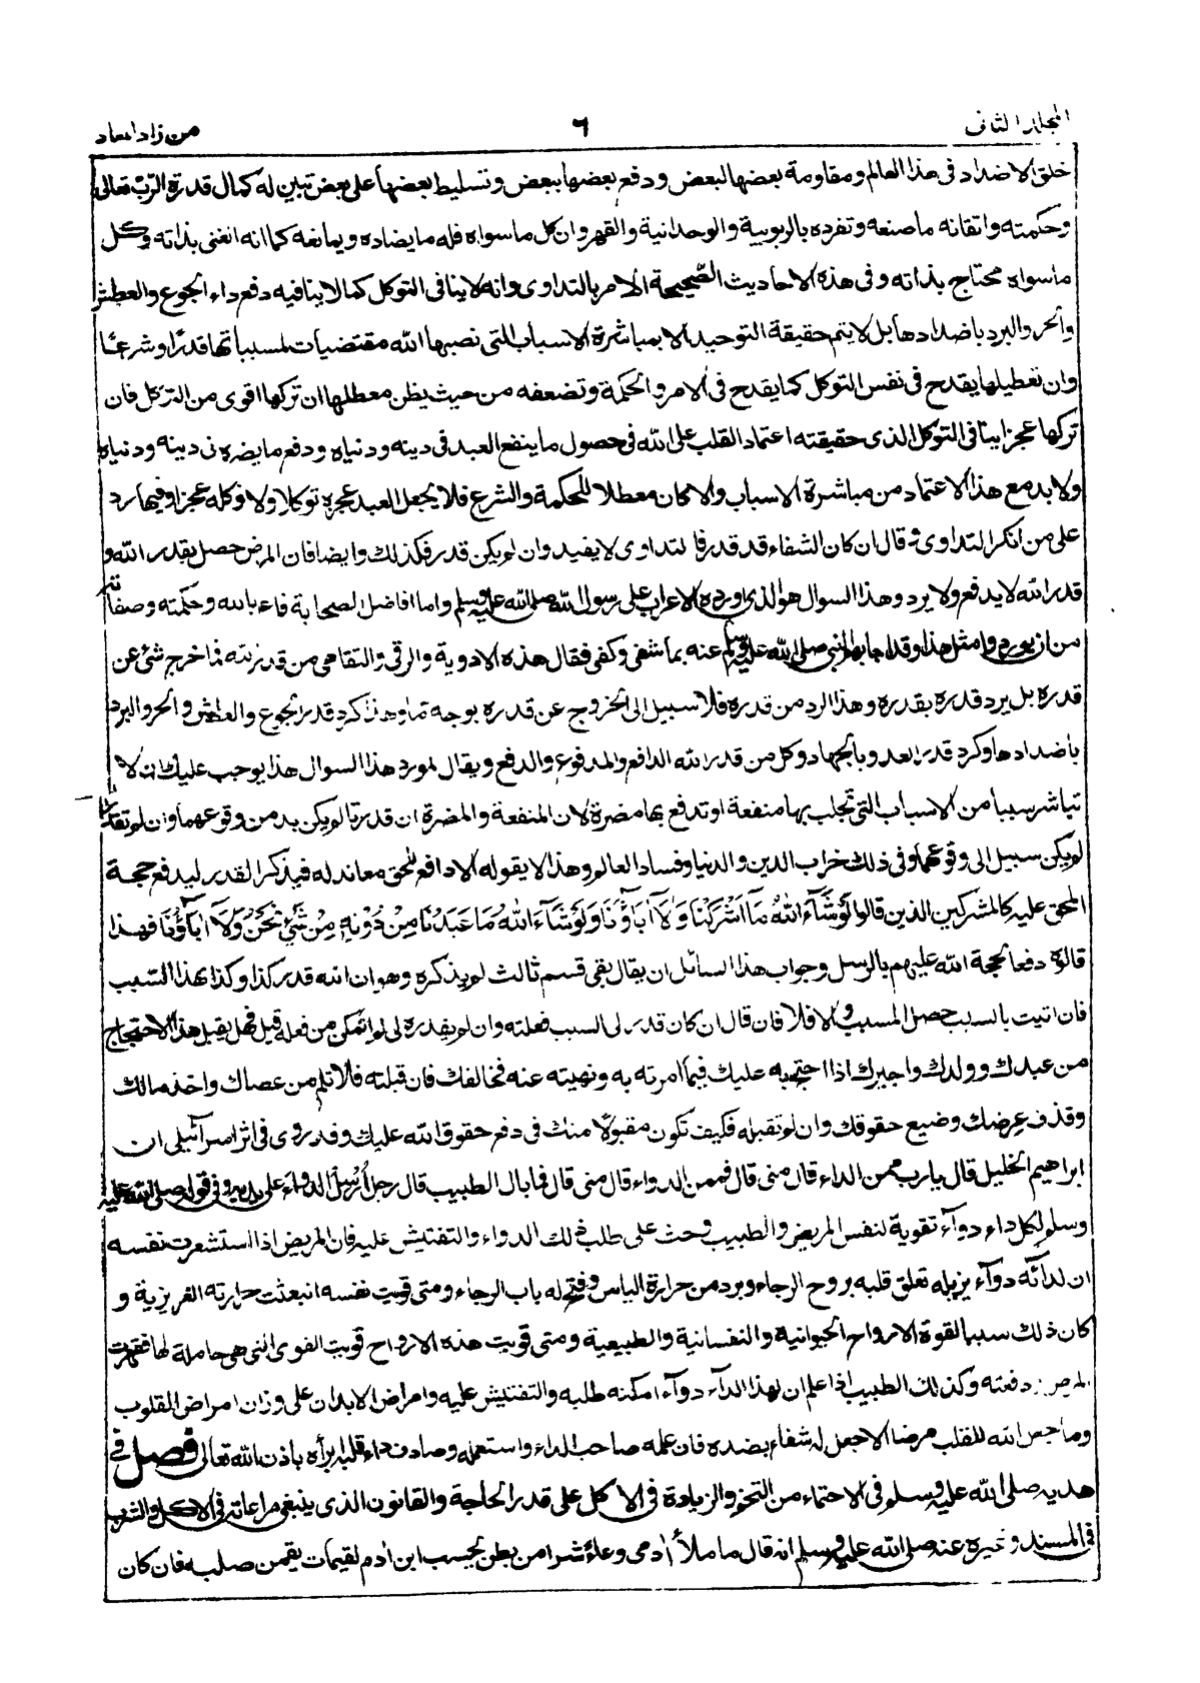 المجلد الثانى
٦
من زاد المعاد
خلق الاضداد فى هذا العالم ومقاومة بعضها لبعض ودفع بعضها ببعض وتسليط بعضها على بعض تبين له كمال قدرة الرب تعالى
وحكمته واتقانه ما صنعه وتفرده بالربوبية والوحدانية والقهر وان كل ما سواه فله ما يضاده ويمانعه كما انه الغنى بذاته وكل
ما سواه محتاج بذاته وفى هذه الاحاديث الصّحيحة الامر بالتداوى وانه لا ينافى التوكل كما لا ينافيه دفع داء الجوع والعطش
والحر والبرد باضدادها بل لا يتم حقيقة التوحيد الا بمباشرة الاسباب التى نصبها الله مقتضيات لمسبباتها قدرًا وشرعًا
وان تعطيلها يقدح فى نفس التوكل كما يقدح فى الامر والحكمة وتضعفه من حيث يظن معطلها ان تركها اقوى من التوكل فان
تركها عجزا ينافى التوكل الذى حقيقته اعتماد القلب على الله فى حصول ما ينفع العبد فى دينه ودنياه ودفع ما يضره فى دينه ودنياه
ولا بد مع هذا الاعتماد من مباشرة الاسباب والا كان معطلا للحكمة والشرع فلا يجعل العبد عجزه توكلا ولا توكله عجزا وفيها رد
على من انكر التداوى وقال ان كان الشفاء قد قدر فالتداوى لا يفيد وان لم يكن قدر فكذلك وايضا فان المرض حصل بقدر الله و
قدر الله لا يدفع ولا يرد وهذا السوال هو الذى اورده الاعراب على رسول الله صلى الله عليه وسلم واما افاضل الصحابة فاعلم بالله وحكمته وصفاته
من ان يوردوا مثل هذا وقد اجابهم النبى صلى الله عليه وسلم عنه بما شفى وكفى فقال هذه الادوية والرقى والتقا هى من قدر الله فما خرج شئ عن
قدره بل يرد قدره بقدره وهذا الرد من قدره فلا سبيل الى الخروج عن قدره بوجه ما وهذا كرد قدر الجوع والعطش والحر والبرد
باضدادها وكرد قدر العدو بالجهاد وكل من قدر الله الدافع والمدفوع والدفع ويقال لمورد هذا السوال هذا يوجب عليك ان لا
تباشر سببا من الاسباب التى تجلب بها منفعة او تدفع بها مضرة لان المنفعة والمضرة ان قدرتا لم يكن بد من وقوعهما وان لم تقدرا
لم يكن سبيل الى وقوعهما وفى ذلك خراب الدين والدنيا وفساد العالم وهذا لا يقوله الا دافع للحق معاند له فيذكر القدر ليدفع حجة
المحق عليه كالمشركين الذين قالوا لَوْ شَآءَ اللهُ مَآ اَشْرَكْنَا وَلَآ اٰبَآؤُنَا وَلَوْ شَآءَ اللهُ مَا عَبَدْنَا مِنْ دُوْنِهٖ مِنْ شَيْءٍ نَحْنُ وَلَآ اٰبَآؤُنَا فهذا
قالوه دفعا لحجة الله عليهم بالرسل وجواب هذا السائل ان يقال بقى قسم ثالث لم يذكره وهو ان الله قدر كذا وكذا بهذا السبب
فان اتيت بالسبب حصل المسبب والا فلا فان قال ان كان قدر لى السبب فعلته وان لم يقدره لى لم اتمكن من فعله قيل فهل يقبل هذا الاحتجاج
من عبدك وولدك واجيرك اذا احتج به عليك فيما امرته به ونهيته عنه فخالفك فان قبلته فلا تلم من عصاك واخذ مالك
وقذف عرضك وضيع حقوقك وان لم تقبله فكيف تكون مقبولًا منك فى دفع حقوق الله عليك وقد روى فى اثر اسرائيلى ان
ابراهيم الخليل قال يا رب ممن الداء قال منى قال فممن الدواء قال منى قال فما بال الطبيب قال رجل أُرسل الدواء على يديه وفى قوله صلى الله عليه
وسلم لكل داء دوآء تقوية لنفس المريض والطبيب وحث على طلب ذلك الدواء والتفتيش عليه فان المريض اذا استشعرت نفسه
ان لدائه دوآء يزيله تعلق قلبه بروح الرجاء وبرد من حرارة الياس وفتح له باب الرجاء ومتى قويت نفسه انبعثت حرارته الغريزية و
كان ذلك سببا لقوة الارواح الحيوانية والنفسانية والطبيعية ومتى قويت هذه الارواح قويت القوى التى هى حاملة لها فقهرت
المرض ودفعته وكذلك الطبيب اذا علم ان لهذا الدآء دوآء امكنه طلبه والتفتيش عليه وامراض الابدان على وزان امراض القلوب
وما جعل الله للقلب مرضا الا جعل له شفاء بضده فان علمه صاحب الداء واستعمله وصادف داء قلبه ابرأه باذن الله تعالى فصل فى
هديه صلى الله عليه وسلم فى الاحتماء من التخم والزيادة فى الاكل على قدر الحاجة والقانون الذى ينبغى مراعاته فى الاكل والشرب
فى المسند وغيره عنه صلى الله عليه وسلم انه قال ما ملأ آدمى وعاءً شرا من بطن بحسب ابن آدم لقيمات يقمن صلبه فان كان